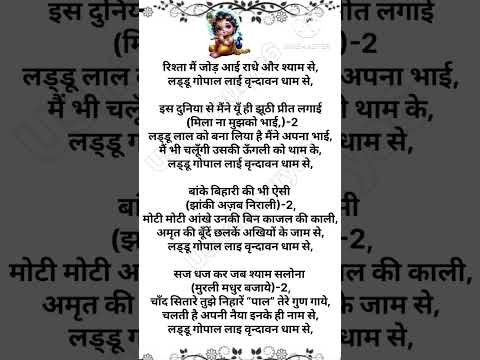 रिश्ता मैं जोड़ आई राधे और श्याम से,
लड्डू गोपाल लाई वृन्दावन धाम से,
इस दुनिया से मैंने यूँ ही झूठी प्रीत लगाई
(मिला ना मुझको भाई,)-2
लड्डू लाल को बना लिया है मैंने अपना भाई,
मैं भी चलूँगी उसकी ऊँगली को थाम के,
लड्डू गोपाल लाई वृन्दावन धाम से,
बांके बिहारी की भी ऐसी
(झांकी अज़ब निराली)-2,
मोटी मोटी आंखे उनकी बिन काजल की काली,
अमृत की बूँदें छलकें अखियों के जाम से,
लड्डू गोपाल लाइ वृन्दावन धाम से,
सज धज कर जब श्याम सलोना
(मुरली मधुर बजाये)-2,
चाँद सितारे तुझे निहारें “पाल” तेरे गुण गाये,
चलती है अपनी नैया इनके ही नाम से,
लड्डू गोपाल लाइ वृन्दावन धाम से,